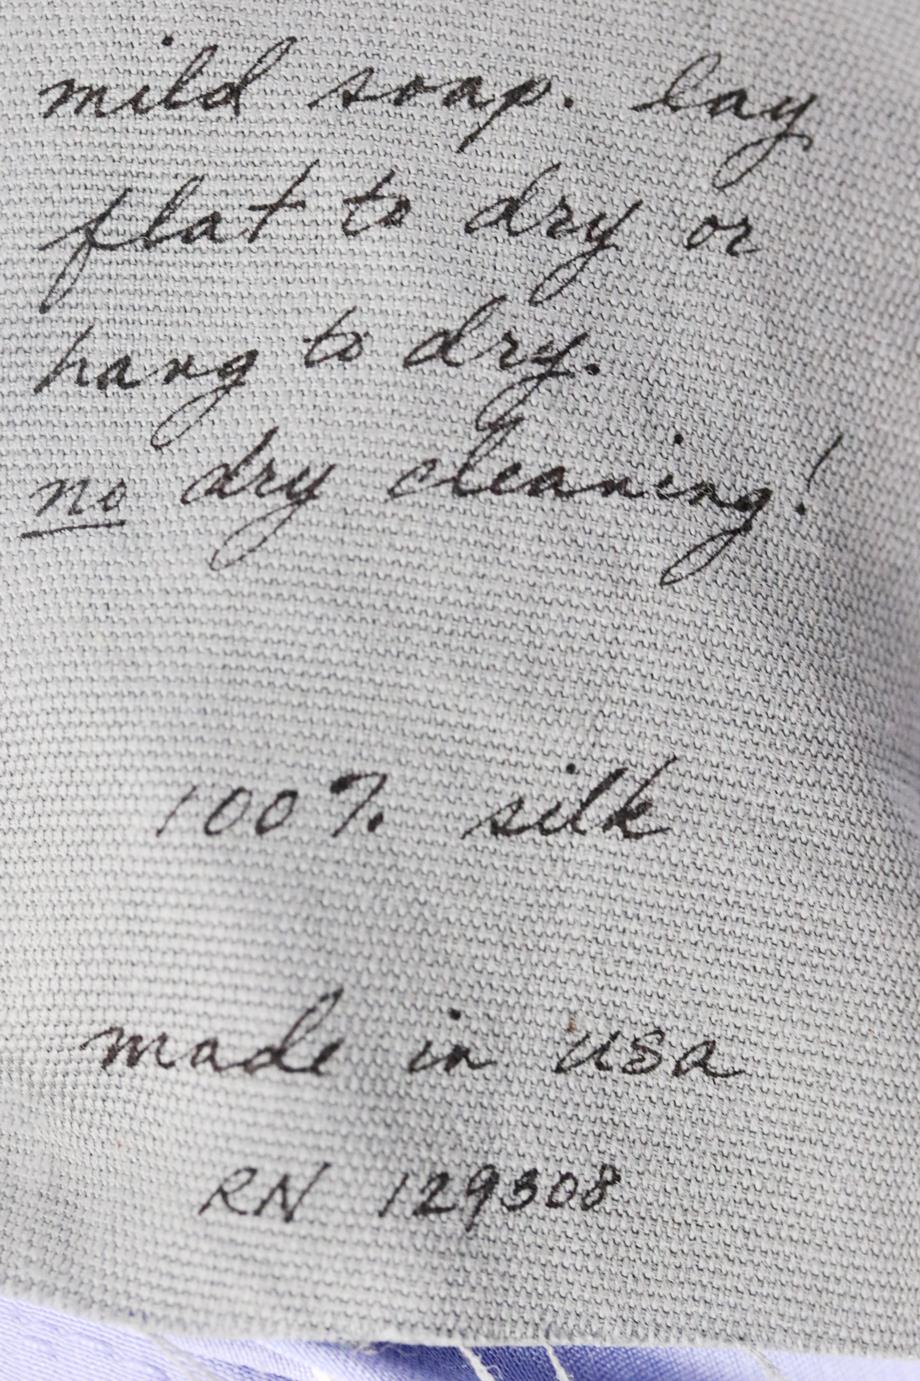 mild soap. lay
flat to dry or
hang to dry.
no dry cleaning!
100% silk
made in usa
RN 129308